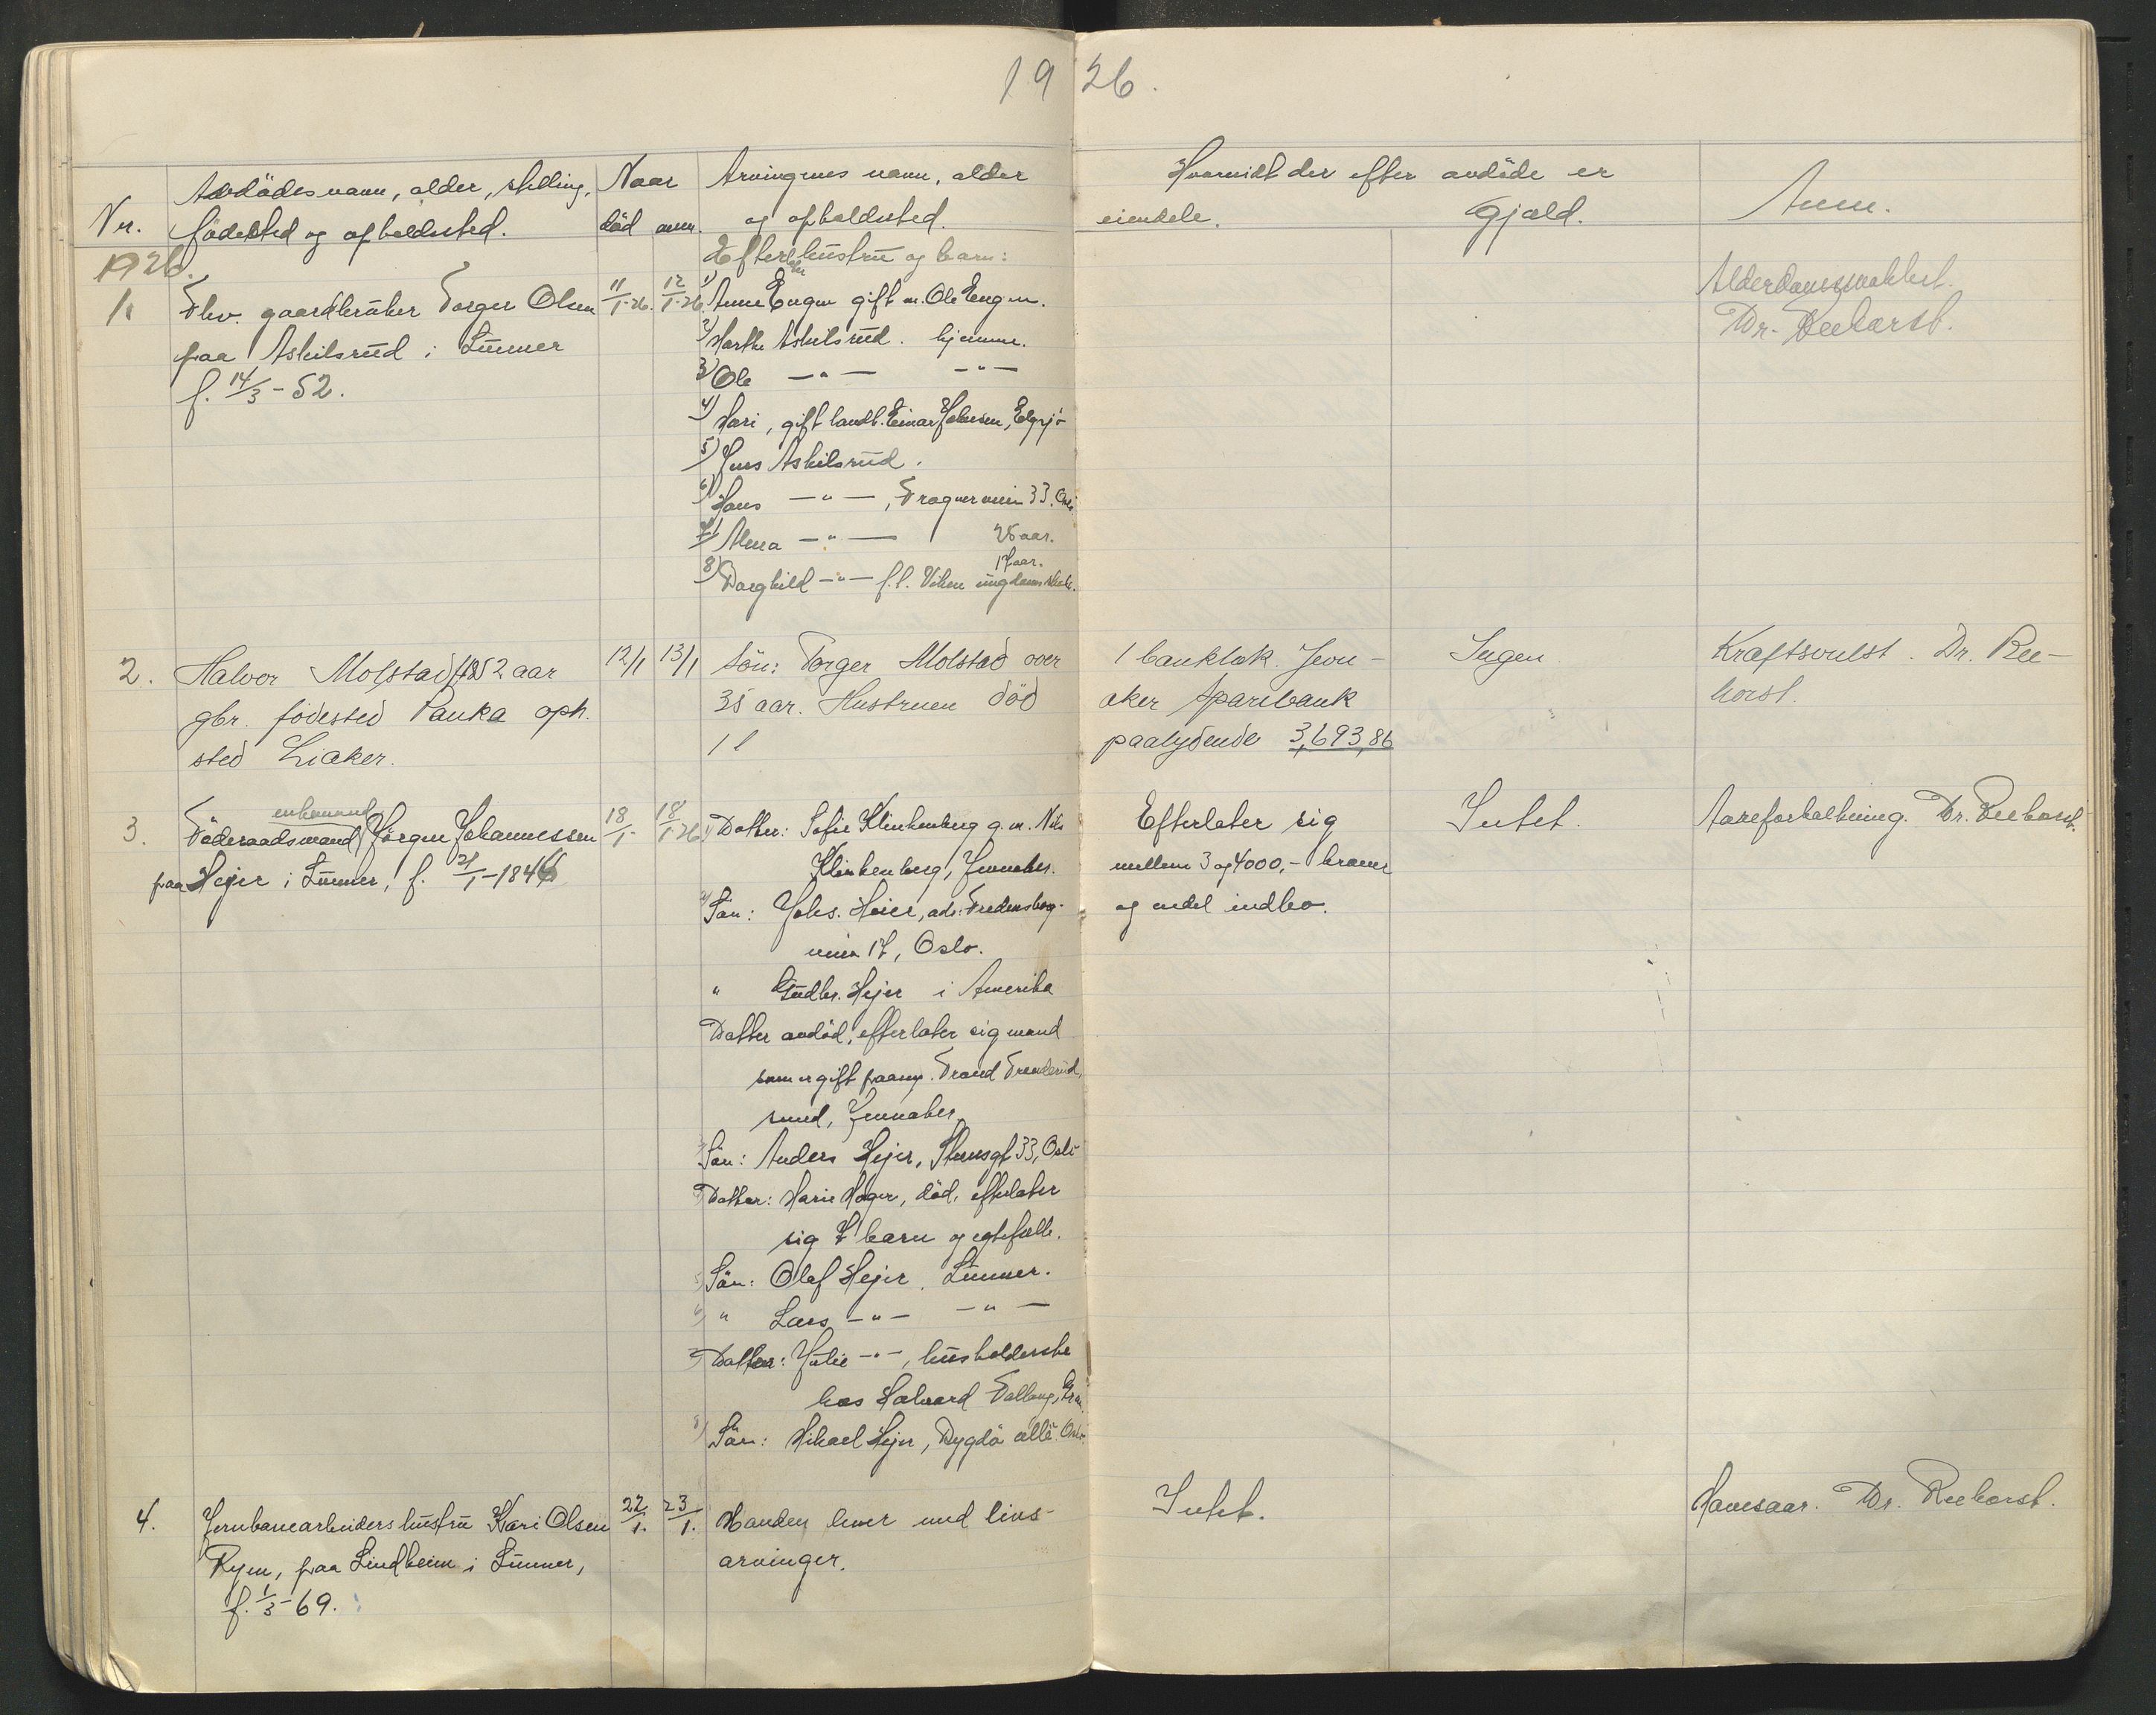 1926.
Nr.
Avdödes navn, alder, stilling,
födested og opholdssted.
Naar
död anm.
Arvingenes navn, alder
og opholdssted.
Hvorvidt der efter avdöde er
eiendele.
Gjæld.
Anm.
1926.
1.
Fhv. gaardbruker Torger Olsen
paa Askilsrud i Lunner
f. 14/3 - 52.
11/1-26.
12/1-26.
Efterl. hustru og barn:
1) Anne Engen gift m. Ole Engen.
2) Marthe Askilsrud. hjemme.
3) Ole —"— —"—
4) Mari, gift landb. Einar Johnsen,
5) Jens Askilsrud.
6) Hans —"—, Frognerveien 33. Oslo
7) Alma —"— 25 aar.
17 aar.
8) Dorghild —"— f.t. Viken ungdomsskole.
Alderdomssvakhet.
Dr. Reehorst.
2.
Halvor Molstad 1852 aar
gbr. födested Pauka oph.
sted Liaker.
12/1
13/1
Sön: Torger Molstad over
35 aar. Hustruen död
1 bankbok. Jevn-
aker Sparebank
paalydende 3,693,86
Ingen
Kraftsvulst. Dr. Ree-
horst.
3.
enkemand
Föderaadsmand Jörgen Johannessen
paa Hejer i Lunner, f. 21/1-1846
18/1-
18/1-26.
1) Datter: Sofie Klinkenberg g.m. Nils
Klinkenberg, Jevnaker.
2) Sön: Johs. Heier, adr. Fredensborg-
veien 17, Oslo.
" Gudbr. Hejer i Amerika
Datter avdöd, efterlater sig mand
som er gift paany. Trond
sund, Jevnaker.
3) Sön: Anders Hejer, 33, Oslo
4) Datter: Marie Hager, död, efterlater
sig 7 barn og egtefælle.
5) Sön: Olaf Hejer, Lunner.
6) " Lars —"— —"—
7) Datter: Julie —"—, husholderske
hos Halvard
8) Sön: Mikael Hejer, Bygdö allé. Oslo.
Efterlater sig
mellem 3 og 4000,- kroner
og endel indbo.
Intet.
Aareforkalkning. Dr. Reehorst.
4.
Jernbanearbeiders hustru Kari Olsen
Ryen, paa Lindheim i Lunner,
f. 1/3-69.
22/1.
23/1.
Manden lever med livs-
arvinger.
Intet.
Mavesaar. Dr. Reehorst.